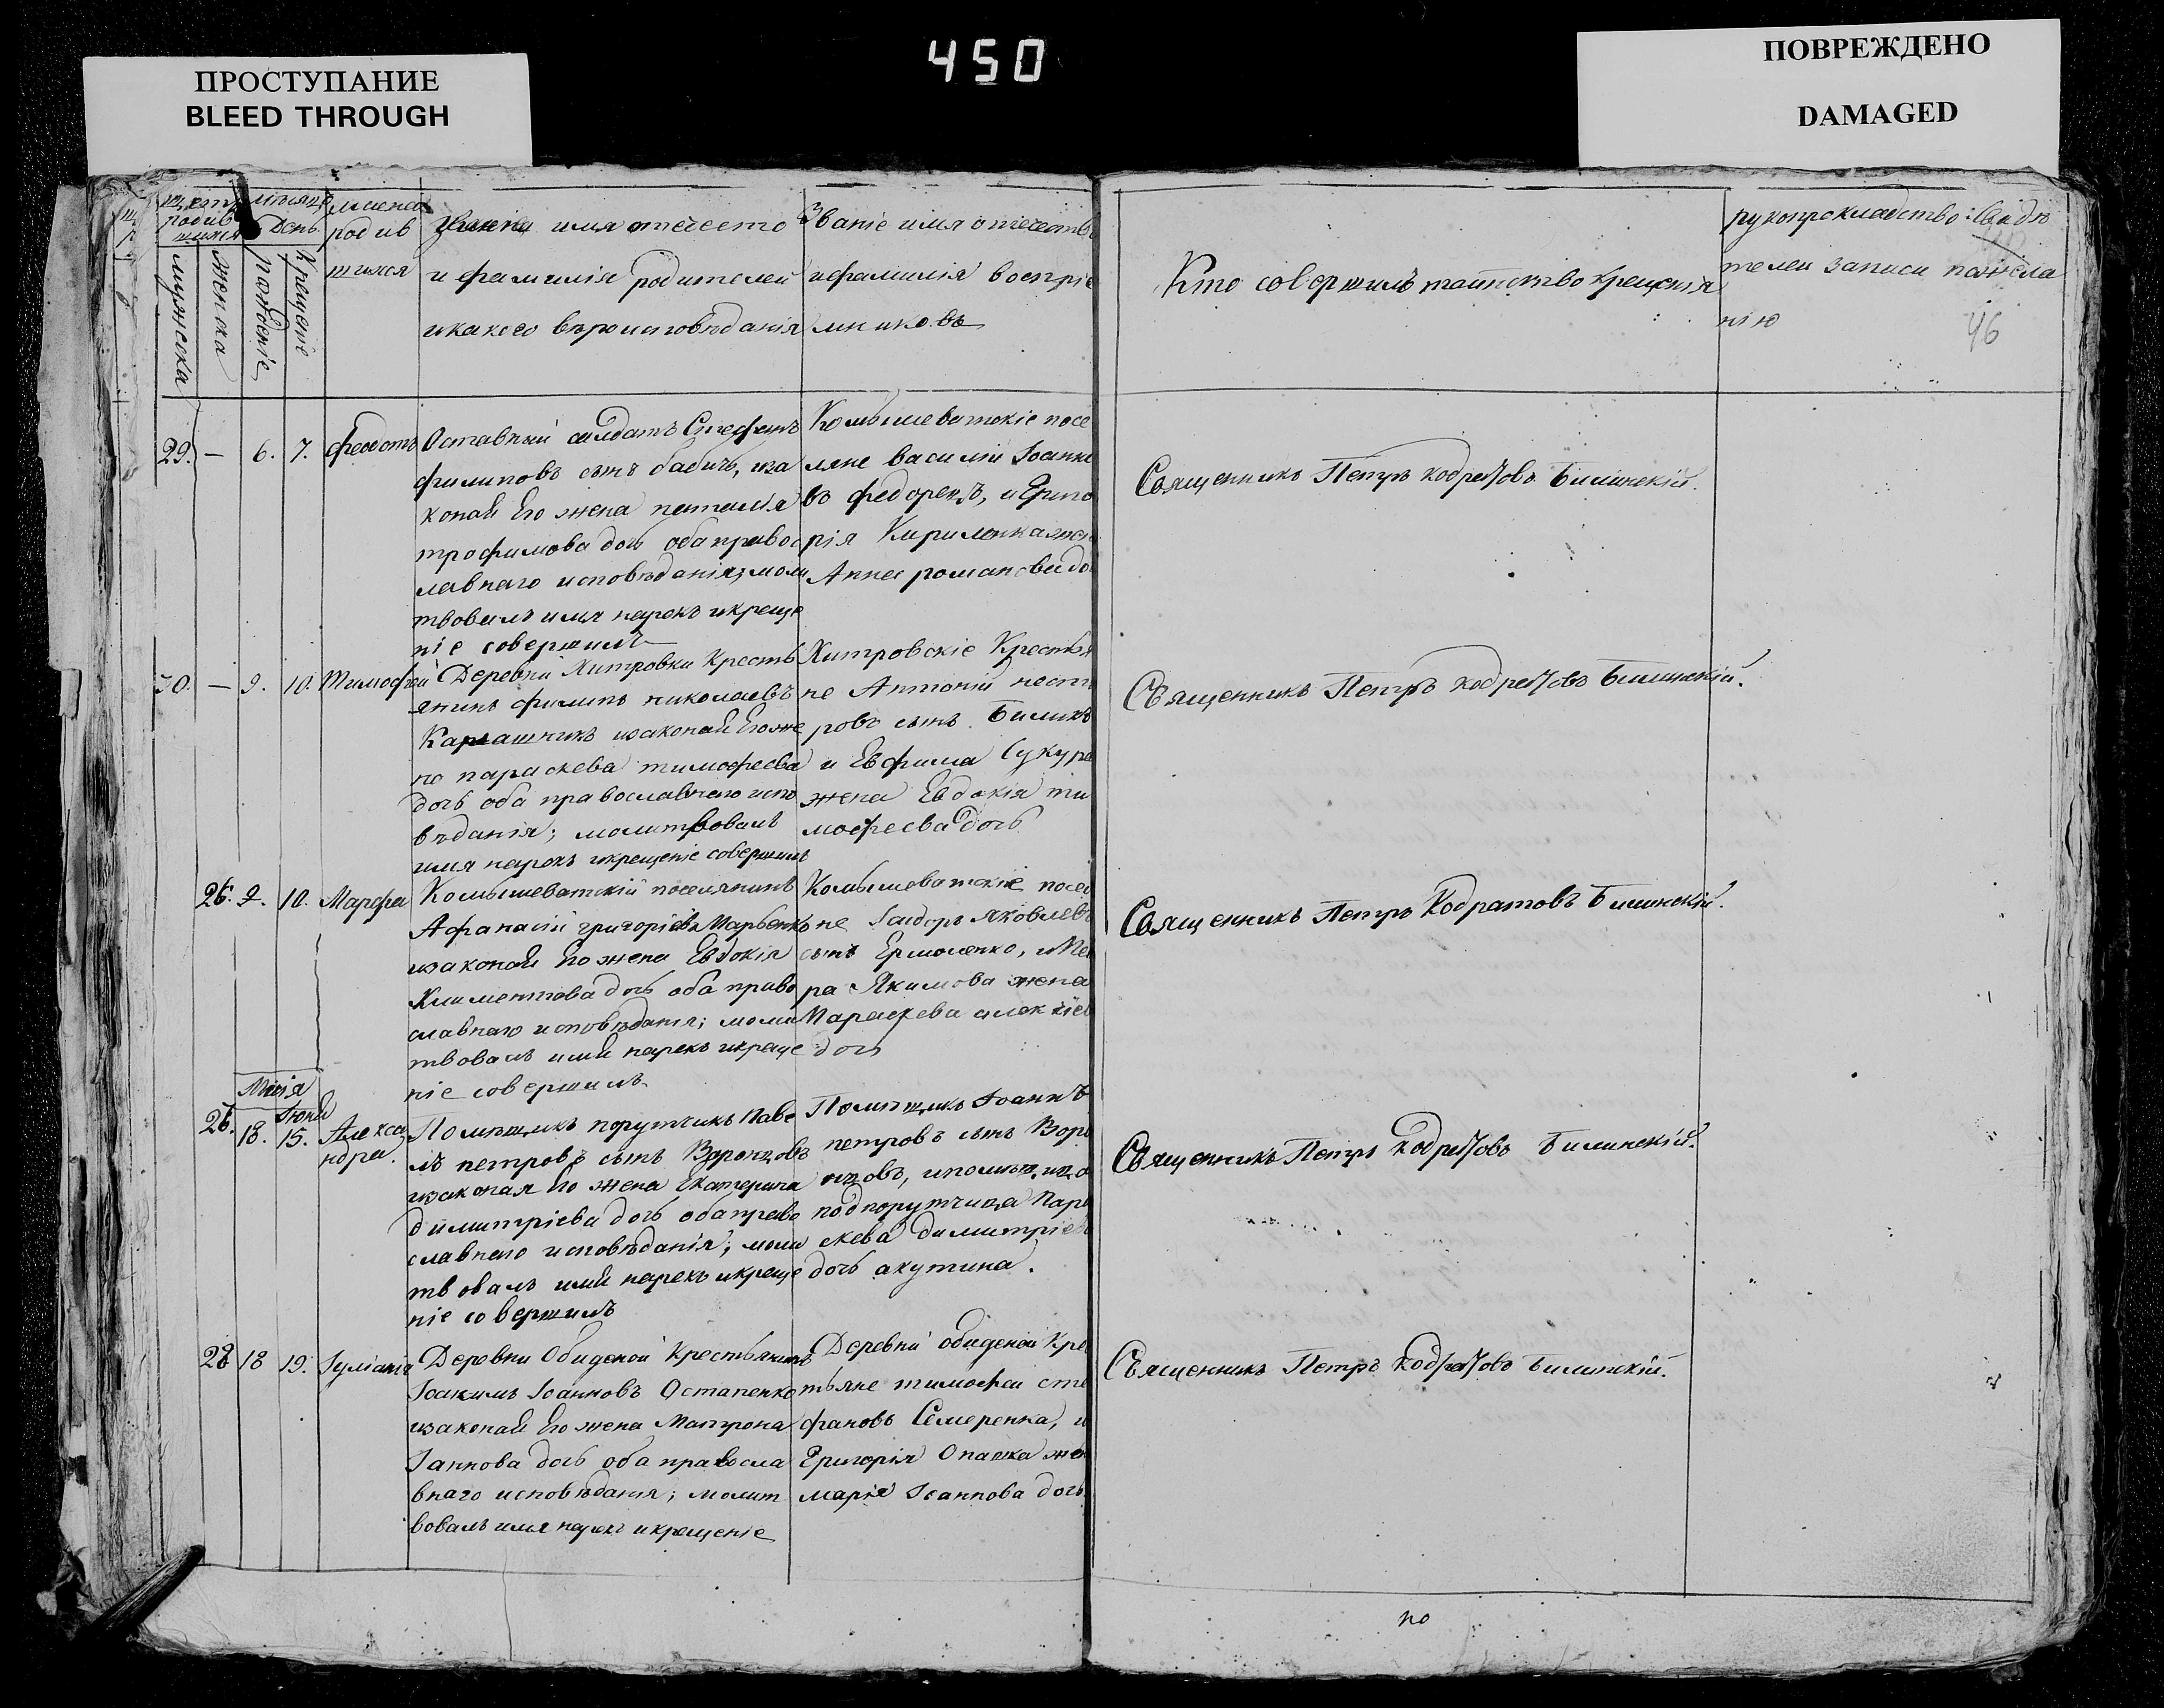 450
ПРОСТУПАНИЕ
BLEED THROUGH
ПОВРЕЖДЕНО
DAMAGED
мужеска
женска
рождение
крещеніе
День
родив
шихся
имя отечество
и фамилія родителей
и какого вѣроисповѣданія
Званіе имя отечество
и фамилія воспріе
мниковъ
Кто совершилъ таинство крещенія
рукоприкладство свидѣ
телей записи по жела
нію
46
29. — 6. 7. Феодотъ
Оставный салдатъ Стефанъ
филиповъ сынъ бабичь, иза
конай Его жена наталія
трофимова дочь оба правос
лавнаго исповѣданія; моли
твовалъ имя нарекъ и креще
ніе совершилъ
Комышеватскіе посе
ляне василій Іоанно
въ федоренъ, и Григо
рія Кириленка жен
Анна романова до
Священникъ Петръ кодратовъ Билинскій.
30. — 9. 10. Тимофей
Деревни Хитровки Кресть
янинъ филипъ николаевъ
изаконай Его же
на параскева тимофеева
дочь оба православнаго испо
вѣданія; молитвовалъ
имя нарекъ и крещеніе совершилъ
Хитровскіе Крестья
не Антоній несте
ровъ сынъ Билыкъ
и Евфима Сукура
жена Евдокія ти
мофеева дочь
Священникъ Петръ кодратовъ Билинскій.
26. 9. 10. Марфа
Комышеватскій поселянинъ
Афанасій григоріевъ Марченко
изаконай Его жена Евдокія
Климентова дочь оба право
славнаго исповѣданія; моли
твовалъ имя нарекъ и креще
ніе совершилъ
Комышеватскіе посел
не Ісидоръ Яковлевъ
сынъ Ермоленко, и
ра Якимова жена
Параскева алексіев
дочь
Священникъ Петръ Кодратовъ Билинскій.
Маія
Іюня
18. 15. Алекса
ндра.
Помѣщикъ порутчикъ Паве
лъ петровъ сынъ Воронцовъ
изаконая Его жена Екатерина
димитріева дочь оба право
славнаго исповѣданія; моли
твовалъ имя нарекъ и креще
ніе совершилъ
Помѣщикъ Іоаннъ
петровъ сынъ Воро
нцовъ, и помѣщица
подпорутчица Пара
скева димитріев
дочь акутина.
Священникъ Петръ кодратовъ Билинскій.
28 18 19. Іуліанія
Деревни Обиденой Крестьянинъ
Іоакимъ Іоанновъ Остапенко
изаконай Его жена Матрона
Іаннова дочь оба правосла
внаго исповѣданія; молит
вовалъ имя нарекъ и крещеніе
Деревни обиденой Кре
тьяне тимофей сте
фановъ Семеренка, и
Григорія Опашка жен
марія Іоаннова дочь
Священникъ Петръ кодратовъ Билинскій.
по